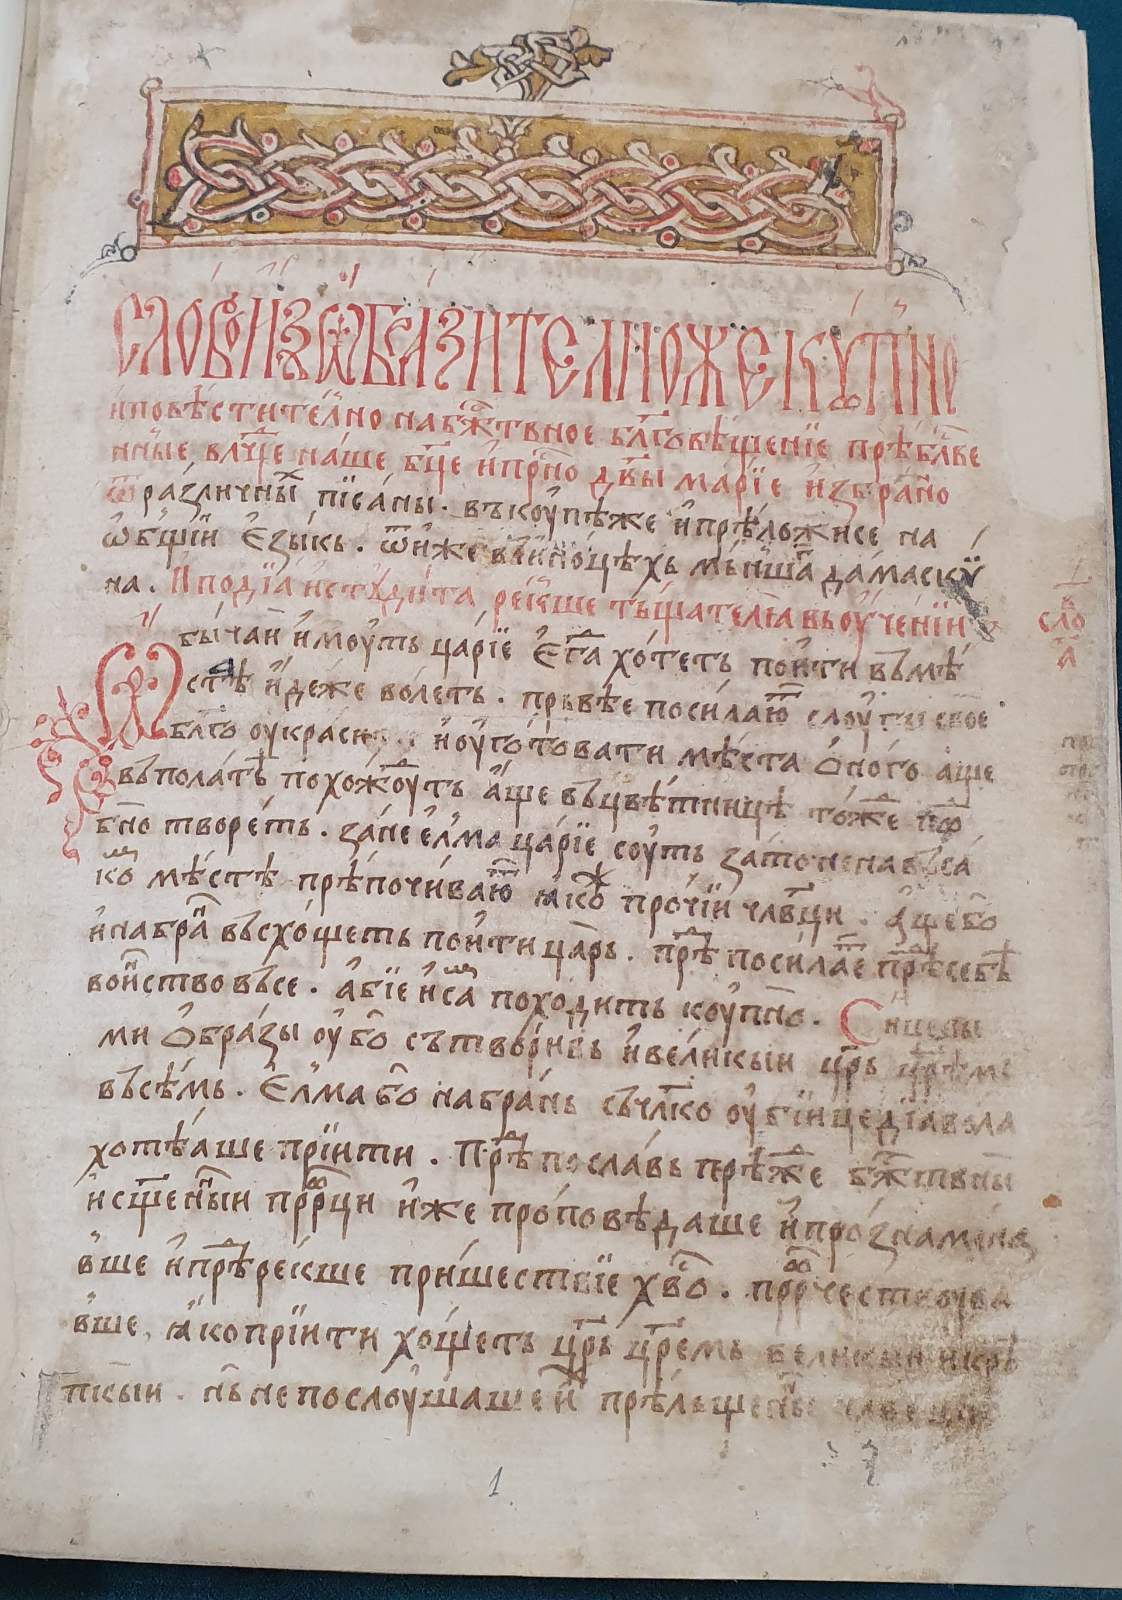 Слово изѡбразителноже кꙋпно
и҆повѣстите́лно набж҃твное бл҃говѣщенїе прѣбл҃ве
нныѥ вл҃чце на́ше бц҃е и҆прⷭ҇но дв҃ы марїѥ и҆збра́но
ѿразличны́х пїса́ны. въкоу́пѣже и҆прѣложисе на
ѡ҆бщїи ѥ҆зы́кь. ѿниже въ и҆но́цѣхь мьнша́гⷪ дама́скꙋ
на. И҆подїа́ и҆стꙋди́та, ре́кше тьщателꙗ въоу҆че́нїи
слово
а҃
Обы́чаи и҆моуть ца́рїѥ ѥ҆гда хо́теть пои́ти въмѣ
стѣ и҆де́же во́леть. прьвѣѥ посила́ют слоугы своѥ
бл҃го оукраси и҆оуго́товати мѣста ѻ҆но́го а҆ще
въпола́тѣ похо́ждоуть а҆ще въцвѣтницѣ то́жде пⷣо
бно творе́ть. за́не ѥ҆лма ца́рїѥ соуть за́то не навьса́
ко́м мѣстѣ прѣпочива́ют ꙗ҆ко́ж про́чїи чл҃вци. а҆щебо
и҆набра́н въсхо́щеть пои́ти ца́рь. прⷣѣ посила́ет прⷣѣсебѣ
во́инство въсе. а҆бїе и҆са́м похо́дить коу́пно. Сицевы
ми ѻ҆бра́зы оу҆бо сътво́ривь и҆вели́кыи цр҃ь цр҃ѥмь
въсѣ́мь. Ѥ҆лма бо набра́нь съчл҃ко оу҆бїицеѥ дїавола
хотѣ́аше прїити. Прⷣѣпосла́вь прѣжⷣе бж҃твны
и҆сщ҃е́нныи прⷪ҇рци и҆же про́повѣдаше и҆про́знамена
вше и҆прⷣѣре́кше прише́ствїе хв҃о. прⷪ҇рчествоува
вше, ꙗ҆ко прїити хо́щеть цр҃ь цр҃ѥмь великыи и҆крѣ
пкыи. нь не послоу́шаше и҆х прѣльщенїи чл҃веци
1